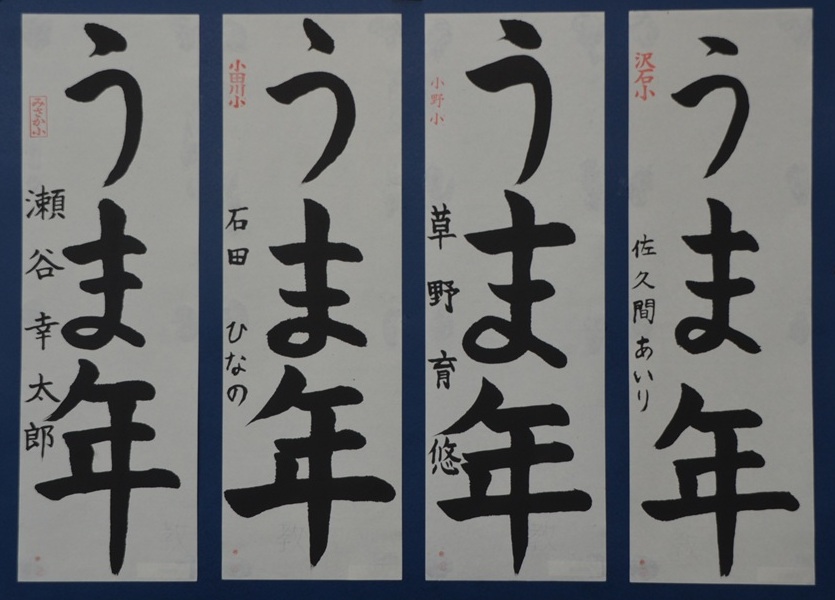 うま年
沢石小
佐久間あいり
うま年
小野小
草野育悠
うま年
小田川小
石田ひなの
うま年
みさか小
瀬谷幸太郎